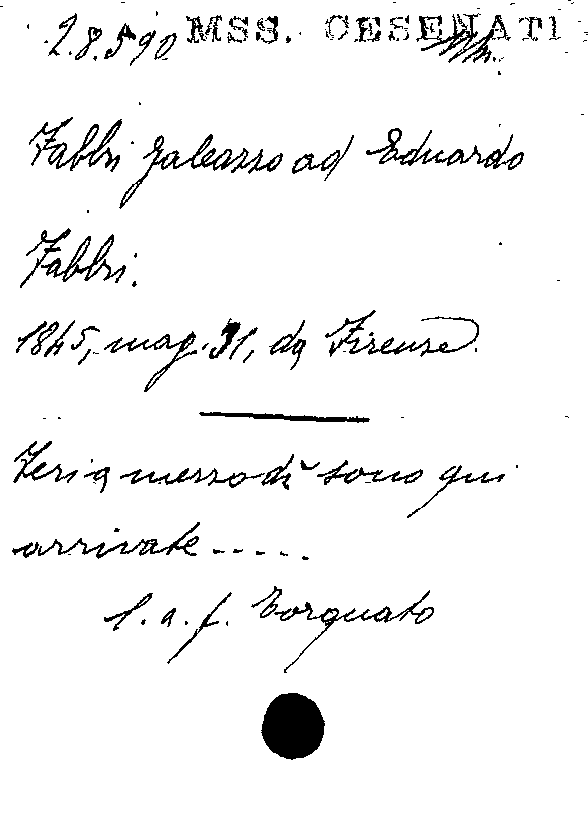 28.590 MSS. CESENATI
Fabbri Galeazzo ad Eduardo
Fabbri.
1845, mag. 31, da Firenze.
Ieri a mezzodì sono qui
arrivate -----
l. a. f. Torquato